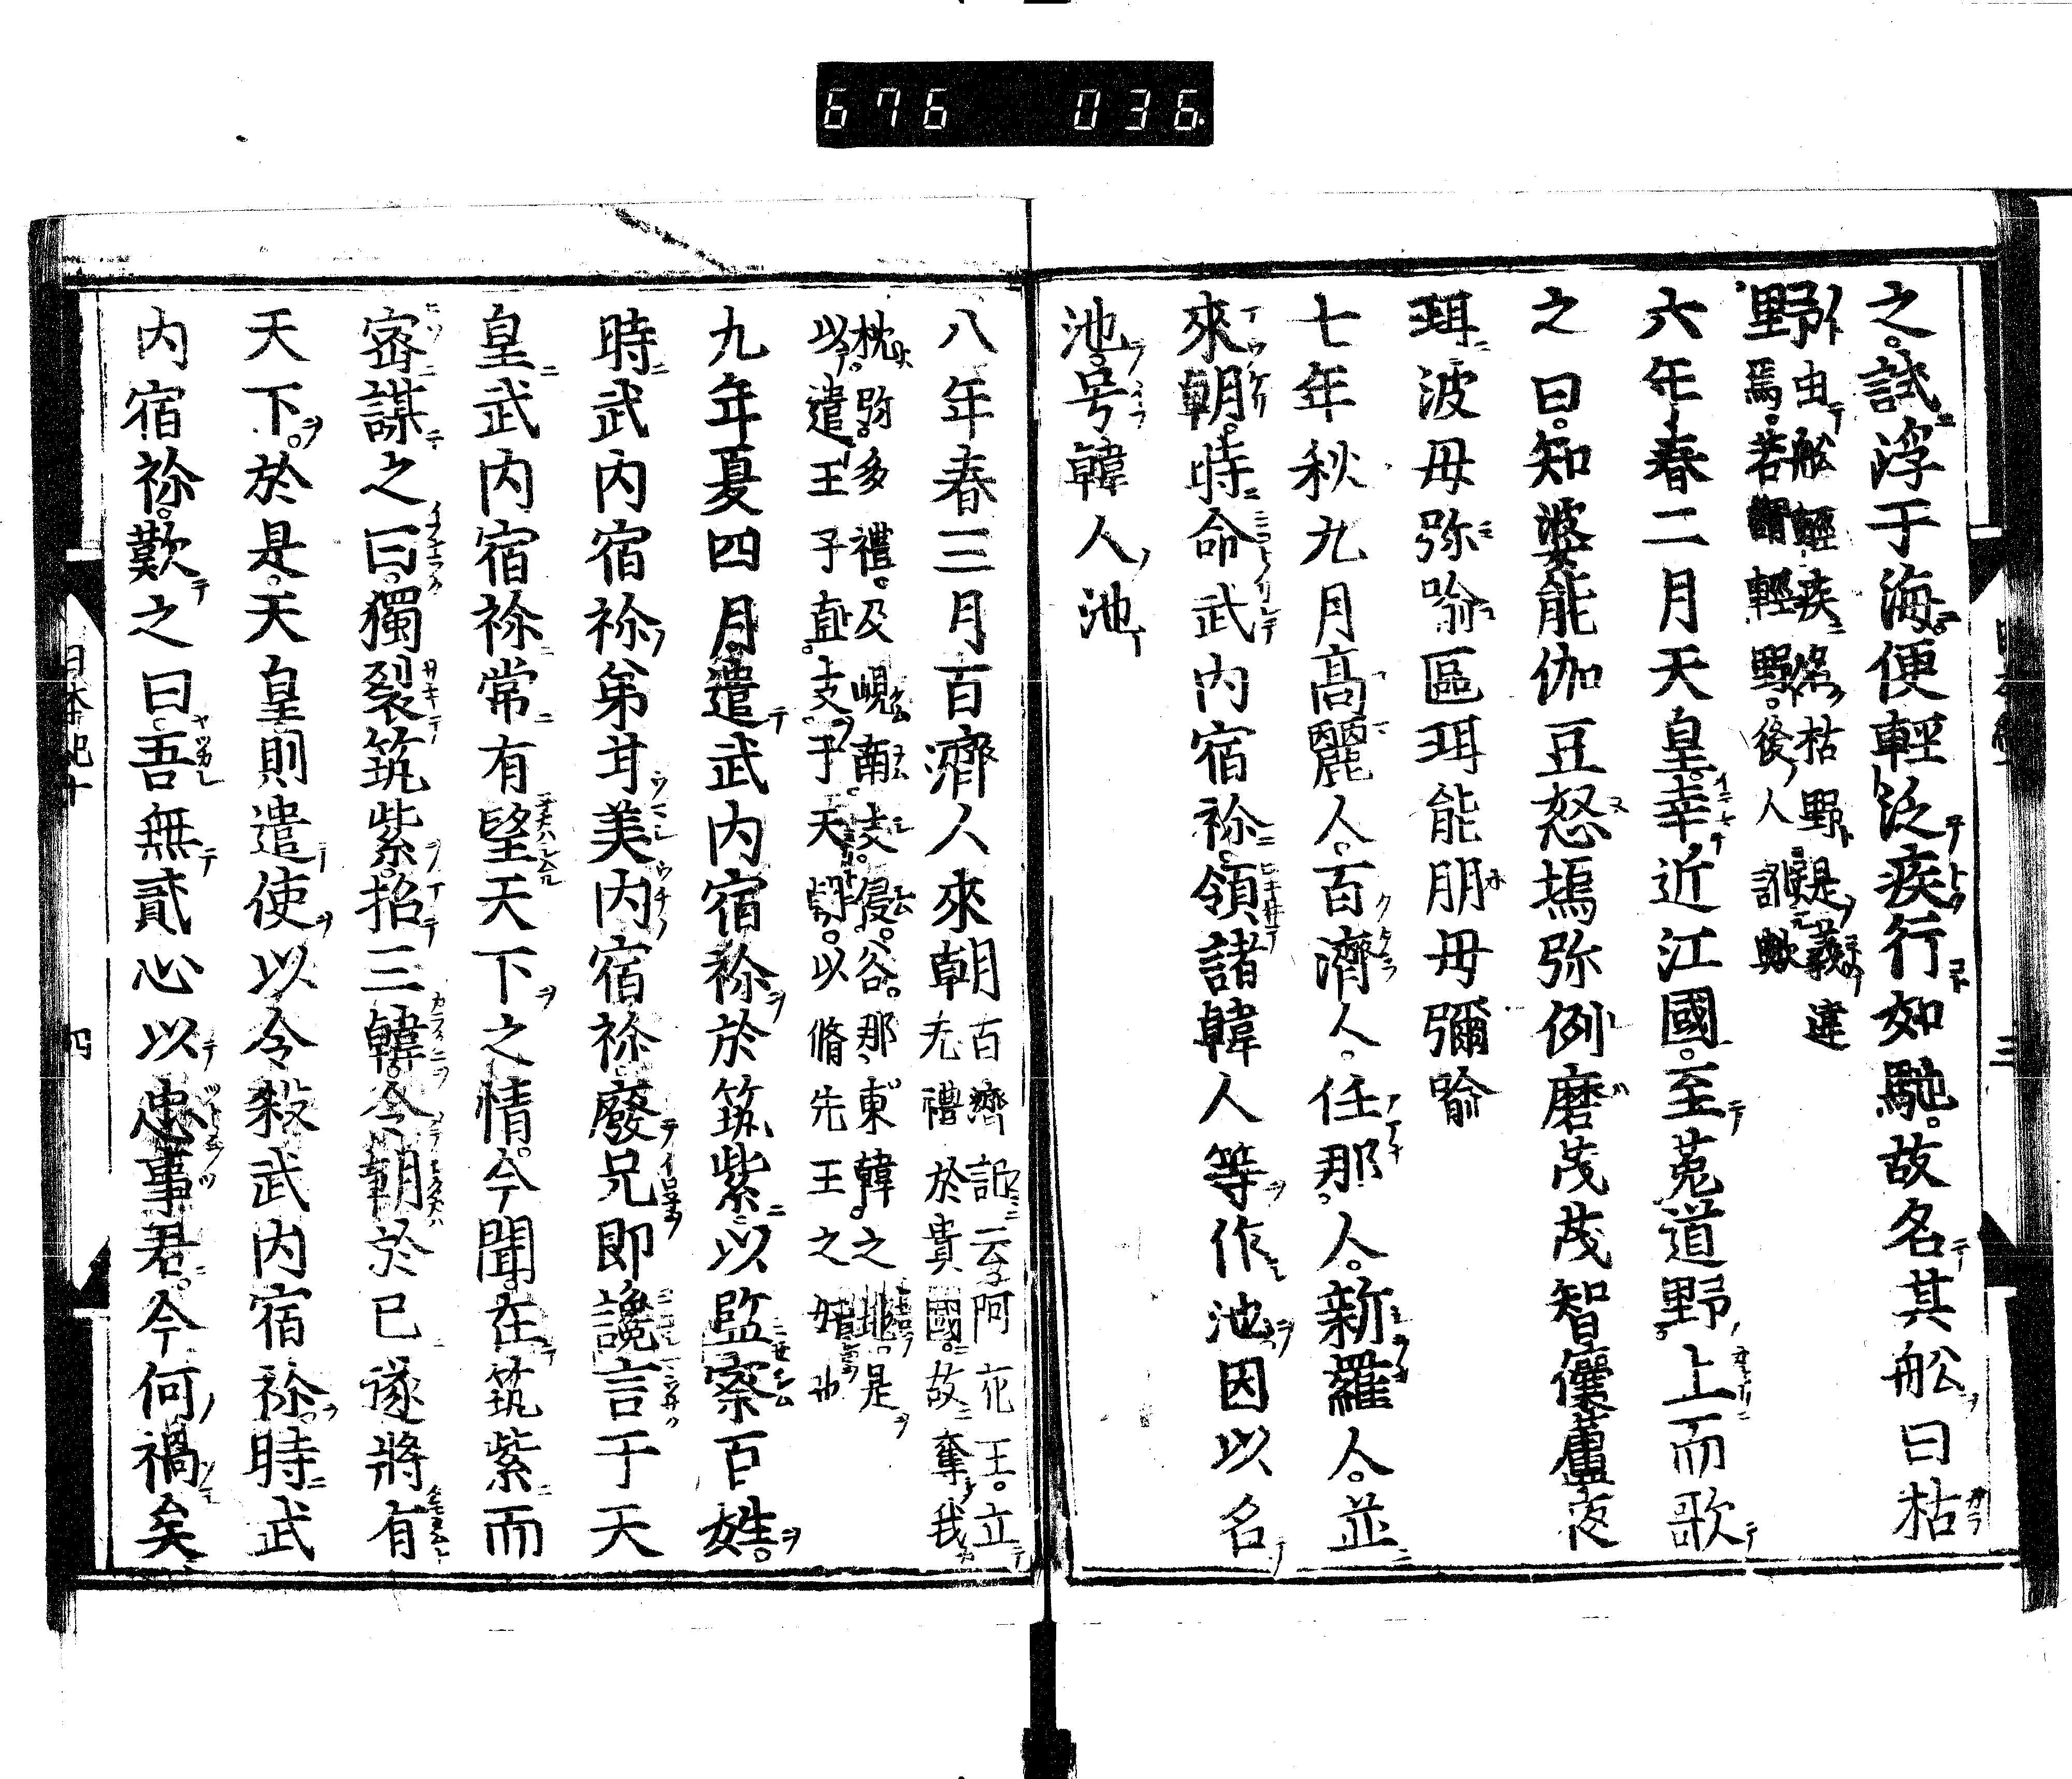 676 036
之試浮于海便輕泛疾行如馳故名其舩曰枯
野由舩輕疾名枯野是義違
焉若謂輕野後人訛歟
六年春二月天皇幸近江國至菟道野上而歌
之曰知婆能伽豆怒塢弥例磨茂茂智儾蘆夜
珥波母弥喩區珥能朋母彌喩
七年秋九月高麗人百濟人任那人新羅人並
來朝時命武内宿祢領諸韓人等作池因以名
池号韓人池
八年春三月百濟人來朝百濟記云阿花王立
无禮於貴國故奪我
枕弥多禮及峴南支侵谷那東韓之地是
以遣王子直支于天朝以脩先王之好也
九年夏四月遣武内宿祢於筑紫以監察百姓
時武内宿祢弟甘美内宿祢廢兄即讒言于天
皇武内宿祢常有望天下之情今聞在筑紫而
密謀之曰獨裂筑紫招三韓令朝於已遂將有
天下於是天皇則遣使以令殺武内宿祢時武
内宿祢歎之曰吾無貳心以忠事君今何禍矣
日本紀十 四